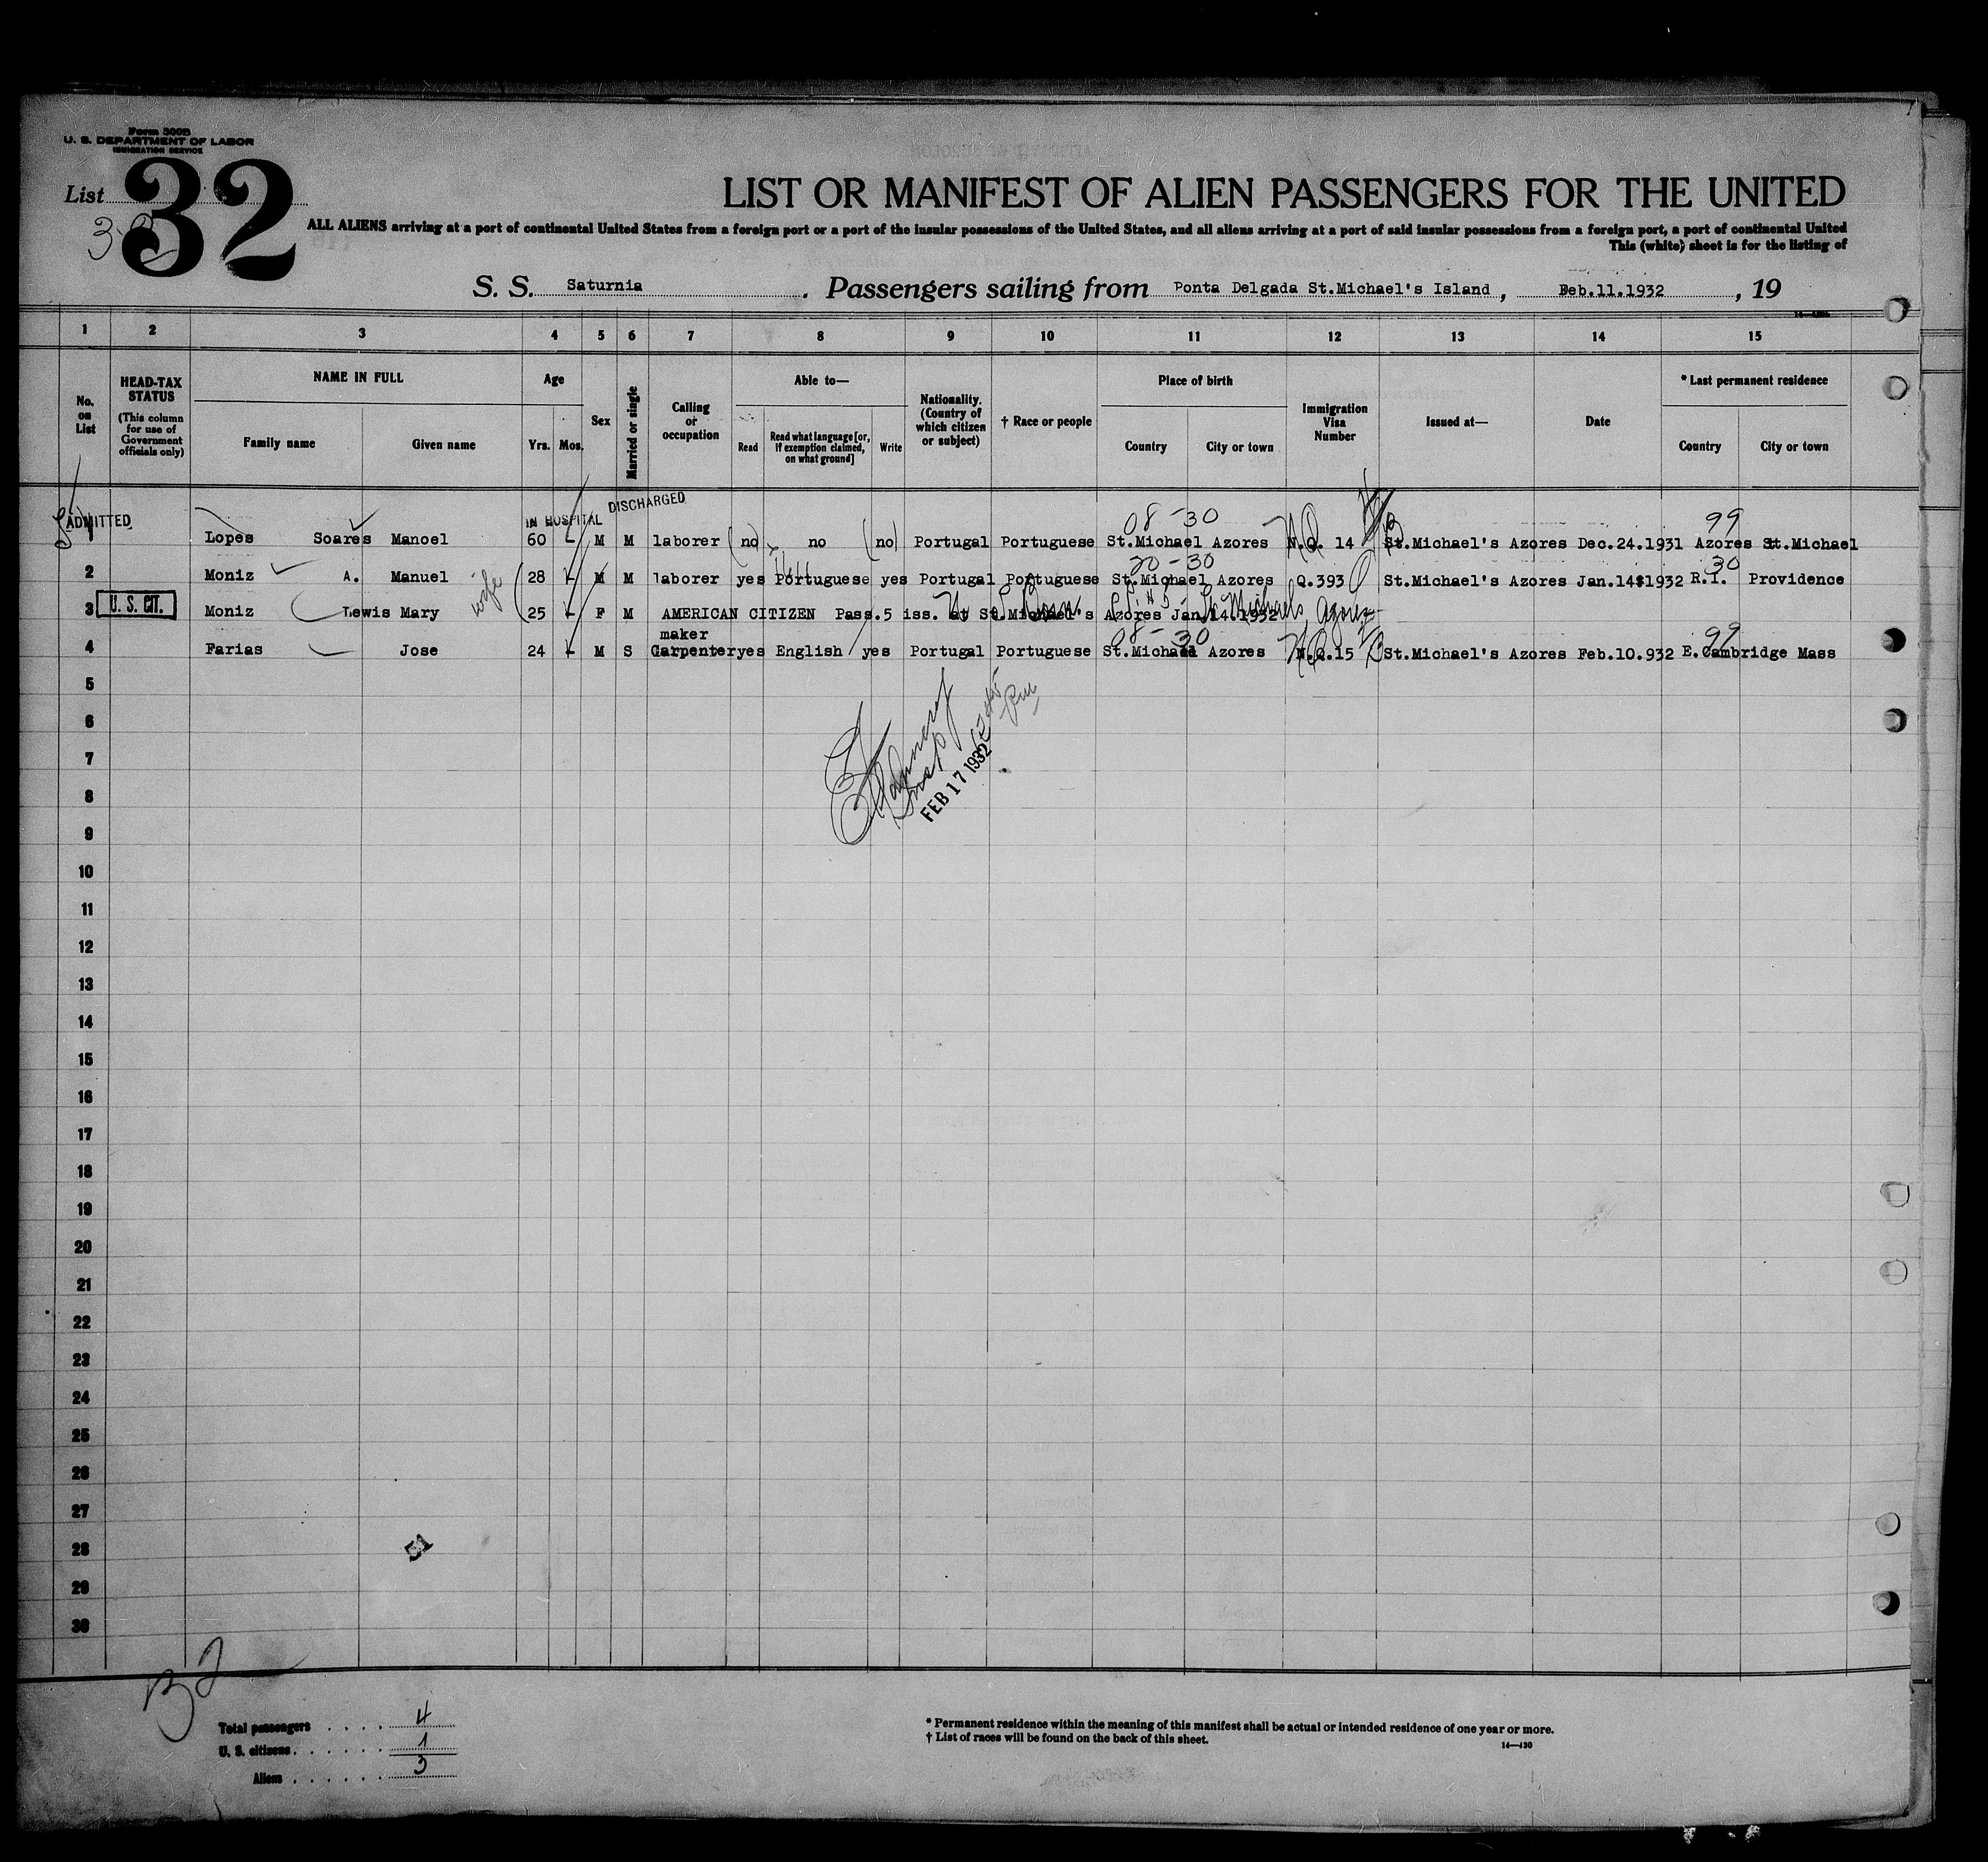 Form 500B
U. S. DEPARTMENT OF LABOR
IMMIGRATION SERVICE
List 32
LIST OR MANIFEST OF ALIEN PASSENGERS FOR THE UNITED
ALL ALIENS arriving at a port of continental United States from a foreign port or a port of the insular possessions of the United States, and all aliens arriving at a port of said insular possessions from a foreign port, a port of continental United
This (white) sheet is for the listing of
S. S. Saturnia. Passengers sailing from Ponta Delgada St.Michael's Island, Feb.11.1932, 19
1 2 3 4 5 6 7 8 9 10 11 12 13 14 15
No. on List
HEAD-TAX STATUS
(This column for use of Government officials only)
NAME IN FULL
Family name Given name
Age
Yrs. Mos.
Sex
Married or single
Calling or occupation
Able to—
Read Read what language [or, if exemption claimed, on what ground] Write
Nationality. (Country of which citizen or subject)
† Race or people
Place of birth
Country City or town
Immigration Visa Number
Issued at—
Date
* Last permanent residence
Country City or town
ADMITTED IN HOSPITAL DISCHARGED 08-30 99
1 Lopes Soares Manoel 60 - M M laborer no no no Portugal Portuguese St.Michael Azores N.Q. 14 St.Michael's Azores Dec.24.1931 Azores St.Michael
20-30 30
2 Moniz A. Manuel 28 - M M laborer yes Portuguese yes Portugal Portuguese St.Michael Azores Q.393 St.Michael's Azores Jan.14.1932 R.I. Providence
wife
3 U. S. CIT. Moniz Lewis Mary 25 - F M AMERICAN CITIZEN Pass.5 iss. at St.Michael's Azores Jan.14.1932
St. Michaels, Azores
maker 08-30 99
4 Farias Jose 24 - M S Carpenter yes English yes Portugal Portuguese St.Michael Azores N.Q.15 St.Michael's Azores Feb.10.932 E.Cambridge Mass
5
6
7
FEB 17 1932
8
9
10
11
12
13
14
15
16
17
18
19
20
21
22
23
24
25
26
27
28 51
29
30
Total passengers . . . . 4
U. S. citizens . . . . . . 1
Aliens . . . . . . 3
* Permanent residence within the meaning of this manifest shall be actual or intended residence of one year or more.
† List of races will be found on the back of this sheet.
14—430